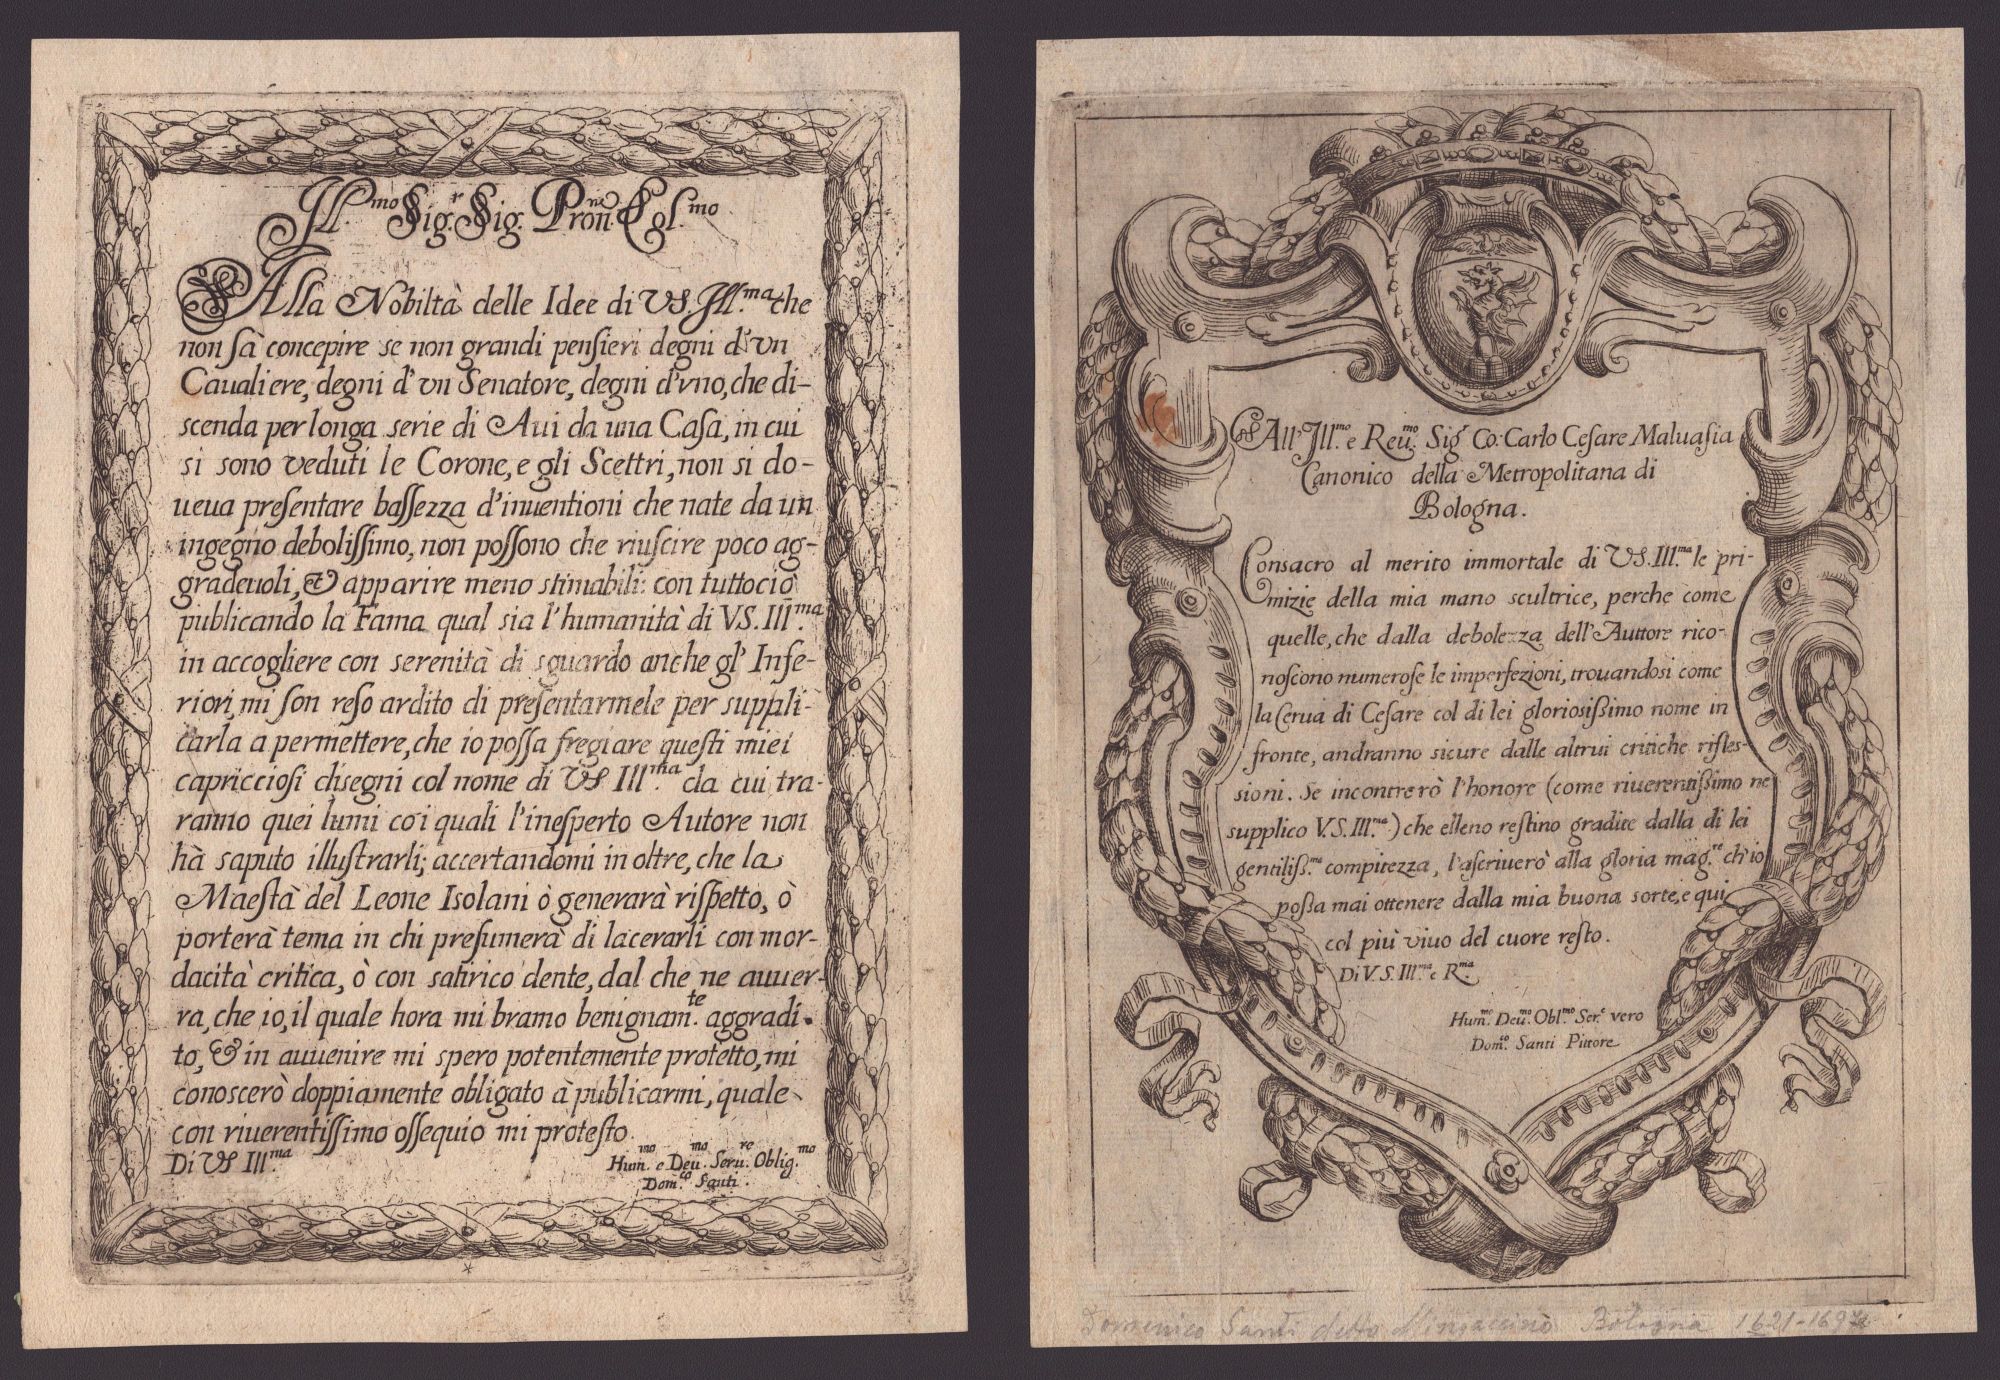 Ill.mo Sig.r Sig. Pron.ne Col.mo
Alla Nobiltà delle Idee di VS. Ill.ma che
non sà concepire se non grandi pensieri degni d'vn
Caualiere, degni d'vn Senatore, degni d'vno, che di-
scenda per longa serie di Aui da una Casa, in cui
si sono veduti le Corone, e gli Scettri, non si do-
ueua presentare bassezza d'inuentioni che nate da un
ingegno debolissimo, non possono che riuscire poco ag-
gradeuoli, & apparire meno stimabili: con tuttociò
publicando la Fama qual sia l'humanità di V.S. Ill.ma
in accogliere con serenità di sguardo anche gl' Infe-
riori, mi son reso ardito di presentarmele per suppli-
carla a permettere, che io possa fregiare questi miei
capricciosi disegni col nome di VS Ill.ma da cui tra-
ranno quei lumi co i quali l'inesperto Autore non
hà saputo illustrarli; accertandomi in oltre, che la
Maestà del Leone Isolani ò generarà rispetto, ò
porterà tema in chi presumerà di lacerarli con mor-
dacità critica, ò con satirico dente, dal che ne auuer-
ra, che io, il quale hora mi bramo benignam.te aggradi-
to, & in auuenire mi spero potentemente protetto, mi
conoscerò doppiamente obligato à publicarmi, quale
con riuerentissimo ossequio mi protesto.
Di VS Ill.ma
Hum.mo e Deu.mo Seru.re Oblig.mo
Dom.co Santi.
All' Ill.mo e Reu.mo Sig Co: Carlo Cesare Maluasia
Canonico della Metropolitana di
Bologna.
Consacro al merito immortale di VS. Ill.ma le pri-
mizie della mia mano scultrice, perche come
quelle, che dalla debolezza dell'Auttore rico-
noscono numerose le imperfezioni, trouandosi come
la Cerua di Cesare col di lei gloriosissimo nome in
fronte, andranno sicure dalle altrui critiche rifles-
sioni. Se incontrerò l'honore (come riuerentissimo ne
supplico V.S. Ill.ma) che elleno restino gradite dalla di lei
gentiliss.ma compitezza, l'ascriuerò alla gloria mag.re ch'io
possa mai ottenere dalla mia buona sorte, e qui
col più viuo del cuore resto.
Di V.S. Ill.ma e R.ma
Hum.mo Deu.mo Obl.mo Ser.e vero
Dom.co Santi Pittore
Domenico Santi detto Bologna 1621-1694